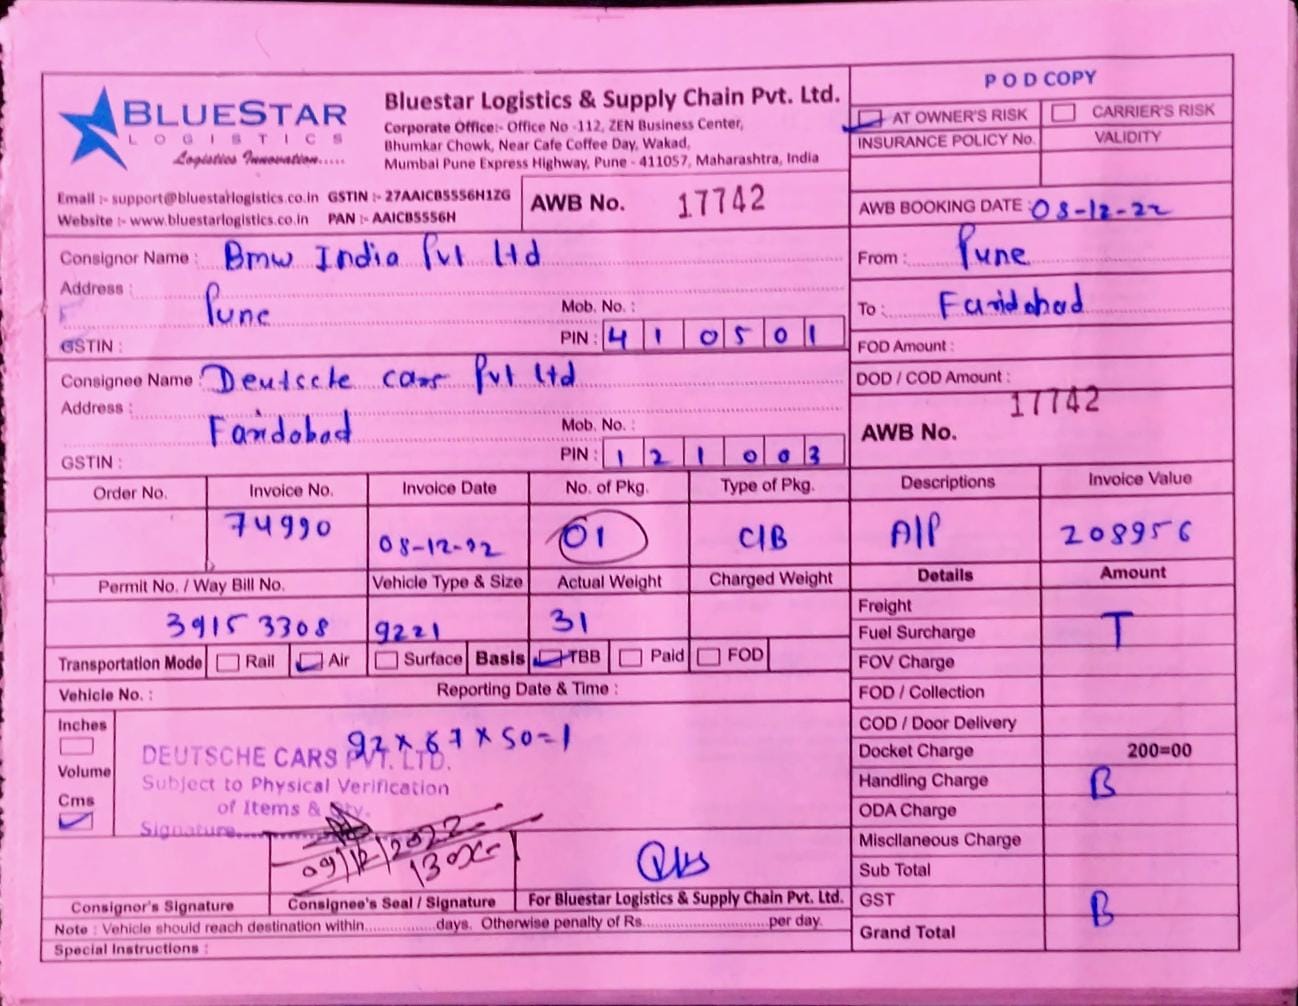 BLUESTAR
LOGISTICS
Logistics Innovation.....
Bluestar Logistics & Supply Chain Pvt. Ltd.
Corporate Office:- Office No -112, ZEN Business Center,
Bhumkar Chowk, Near Cafe Coffee Day, Wakad,
Mumbai Pune Express Highway, Pune - 411057, Maharashtra, India
Email :- support@bluestarlogistics.co.in GSTIN :- 27AAICB5556H1ZG
Website :- www.bluestarlogistics.co.in PAN :- AAICB5556H
AWB No. 17742
POD COPY
AT OWNER'S RISK CARRIER'S RISK
INSURANCE POLICY No. VALIDITY
AWB BOOKING DATE : 08-12-22
Consignor Name : Bmw India Pvt Ltd
Address :
Pune
Mob. No. :
GSTIN :
PIN : 410501
From : Pune
To : Faridabad
FOD Amount :
DOD / COD Amount :
Consignee Name : Deutsche cars Pvt Ltd
Address :
Faridabad
Mob. No. :
GSTIN :
PIN : 121003
17742
AWB No.
Order No. Invoice No. Invoice Date No. of Pkg. Type of Pkg. Descriptions Invoice Value
74990 08-12-22 01 C/B A/P 208956
Permit No. / Way Bill No. Vehicle Type & Size Actual Weight Charged Weight Details Amount
3915 3308 9221 31
Transportation Mode Rail Air Surface Basis TBB Paid FOD
Vehicle No. : Reporting Date & Time :
Inches
Volume
Cms
92 x 67 x 50=1
DEUTSCHE CARS PVT. LTD.
Subject to Physical Verification
of Items & Qty.
Signature
09/12/2022
Consignor's Signature Consignee's Seal / Signature For Bluestar Logistics & Supply Chain Pvt. Ltd.
Note : Vehicle should reach destination within................days. Otherwise penalty of Rs............................per day.
Special Instructions :
Freight
Fuel Surcharge T
FOV Charge
FOD / Collection
COD / Door Delivery
Docket Charge 200=00
Handling Charge B
ODA Charge
Miscllaneous Charge
Sub Total
GST B
Grand Total